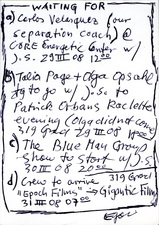 WAITING FOR
a) Carlos Velasquez (our
separation coach) @
CORE Energetic Center w/
J.S. 29 III 08 12⁰⁰
b) Talia Page + Olga
to go w/ J.S. to
Patrick Orbans Raclette
evening (Olga did not come)
319 Grad 29 III 08 18⁰⁰
c) The Blue Man Group
show to start w/ J.S.
30 III 08 20⁰⁰
d) Crew to arrive 319 Grad
"Epoch Films" → Gigantic Films
31 III 08 07⁰⁰